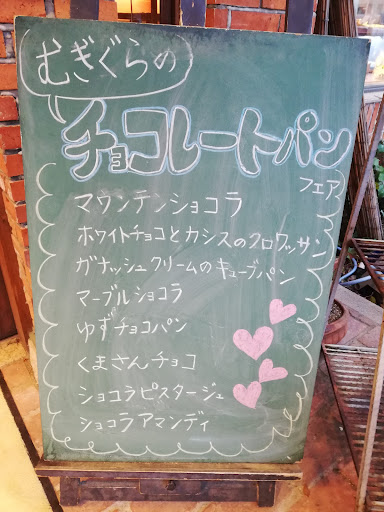 むぎぐらの
チョコレートパン
フェア
マウンテンショコラ
ホワイトチョコとカシスのクロワッサン
ガナッシュクリームのキューブパン
マーブルショコラ
ゆずチョコパン
くまさんチョコ
ショコラピスタージュ
ショコラアマンディ